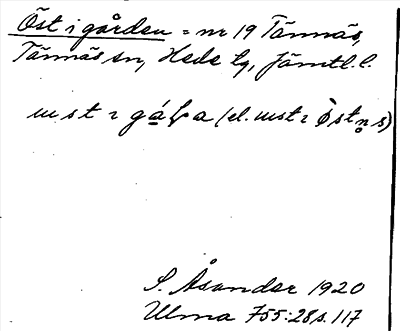 Öst i gården = nr 19 Tännäs,
Tännäs sn, Hede tg, Jämtl. l.
(el.
S. Åsander 1920
Ulma 755:28 s. 117